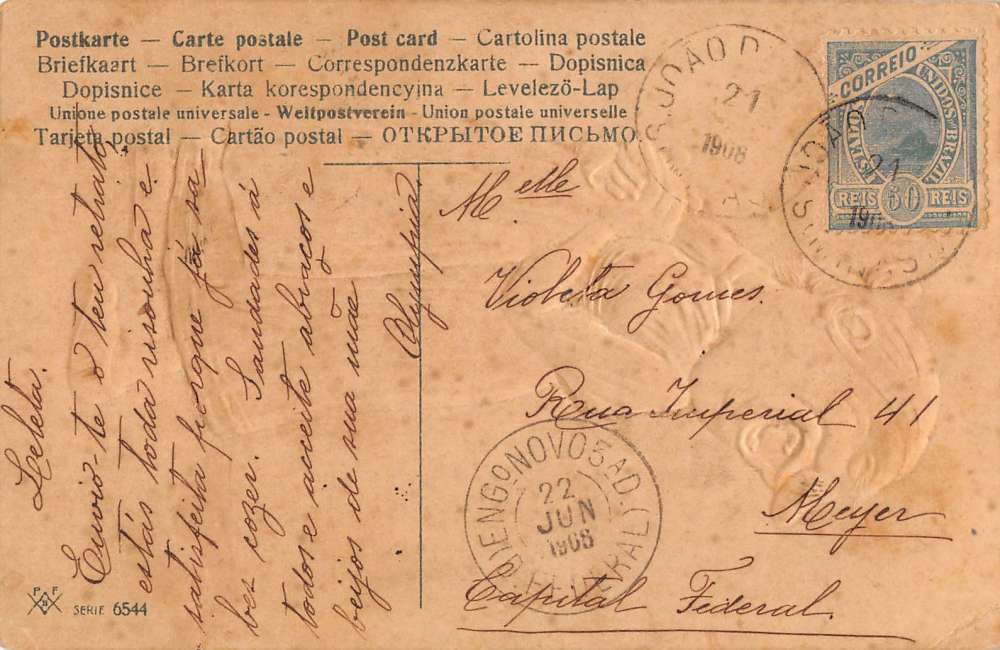 Postkarte — Carte postale — Post card — Cartolina postale
Briefkaart — Brefkort — Correspondenzkarte — Dopisnica
Dopisnice — Karta korespondencyjna — Levelező-Lap
Unione postale universale - Weltpostverein - Union postale universelle
Tarjeta postal — Cartão postal — ОТКРЫТОЕ ПИСЬМО.
S. JOÃO D
21
1908
CORREIO
ESTADOS UNIDOS BRAZIL
REIS 50 REIS
S. JOÃO
21
190
MINAS
Leleta.
Envio-te o teu retrato,
estás toda risonha e
satisfeita porque já sa
bes cozer. Saudades á
todos e acceite abraços e
beijos de sua mãe
Olympia
M.elle
Violeta Gomes.
Rua Imperial 41
Meyer
Capital Federal.
ENGº NOVO 5 A D.
22
JUN
1908
P F
B
SERIE 6544